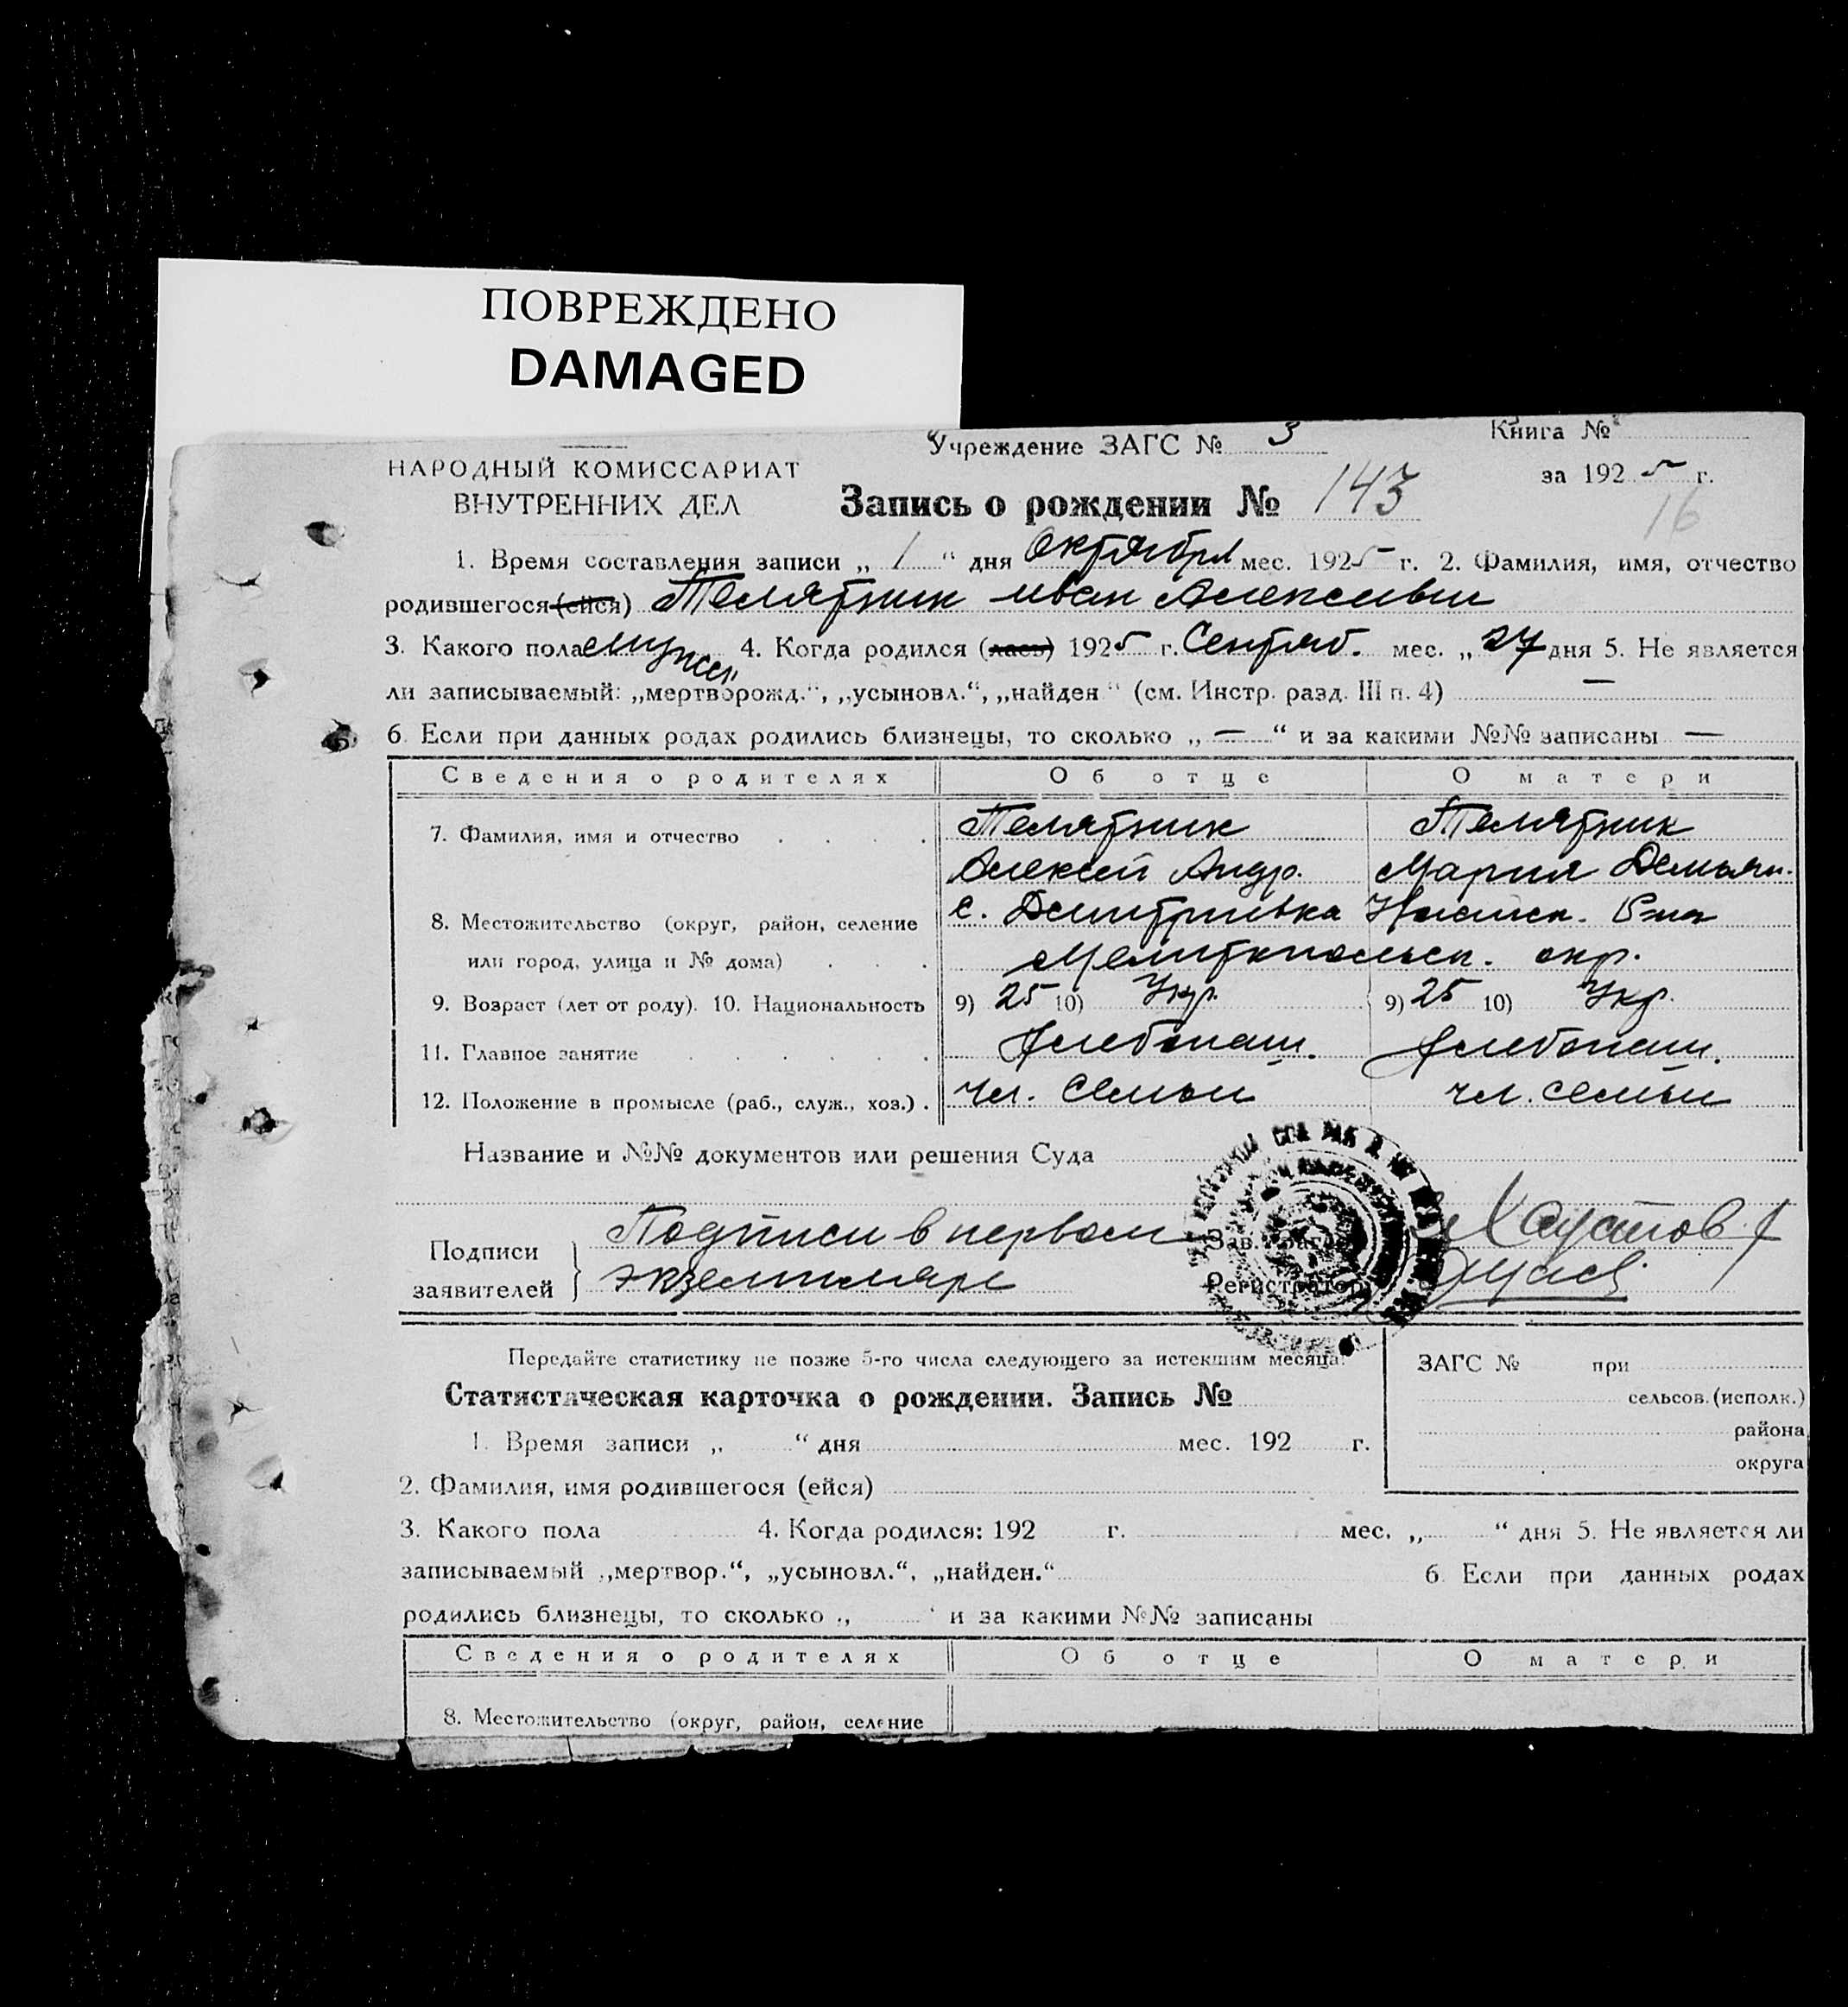 ПОВРЕЖДЕНО
DAMAGED
Учреждение ЗАГС № 3 Книга №
НАРОДНЫЙ КОМИССАРИАТ
ВНУТРЕННИХ ДЕЛ
за 1925 г.
Запись о рождении № 143
16
1. Время составления записи „ 1 “ дня Октября мес. 1925 г. 2. Фамилия, имя, отчество
родившегося (ейся) Телятник Иван Алексеевич
3. Какого пола мужск. 4. Когда родился (лась) 1925 г. Сентяб. мес. „ 27 дня 5. Не является
ли записываемый: „мертворожд.“, „усыновл.“, „найден“ (см. Инстр. разд. III п. 4) —
6. Если при данных родах родились близнецы, то сколько „ — “ и за какими №№ записаны —
Сведения о родителях Об отце О матери
7. Фамилия, имя и отчество Телятник Телятник
Алексей Андр. Мария Демьян.
8. Местожительство (округ, район, селение с. Дмитриевка
или город, улица и № дома) Мелитопольск. окр.
9. Возраст (лет от роду). 10. Национальность 9) 25 10) Укр. 9) 25 10) Укр.
11. Главное занятие Хлебопаш. Хлебопаш.
12. Положение в промысле (раб., служ., хоз.). чл. семьи чл. семьи
Название и №№ документов или решения Суда
Подписи заявителей } Подписи в первом Зав. Загс Хаустов
экземпляре Регистратор
Передайте статистику не позже 5-го числа следующего за истекшим месяца.
Статистическая карточка о рождении. Запись №
ЗАГС № при
сельсов. (исполк.)
района
округа
1. Время записи „ “ дня мес. 192 г.
2. Фамилия, имя родившегося (ейся)
3. Какого пола 4. Когда родился: 192 г. мес. „ “ дня 5. Не является ли
записываемый „мертвор.“, „усыновл.“, „найден.“ 6. Если при данных родах
родились близнецы, то сколько „ “ и за какими №№ записаны
Сведения о родителях Об отце О матери
8. Местожительство (округ, район, селение